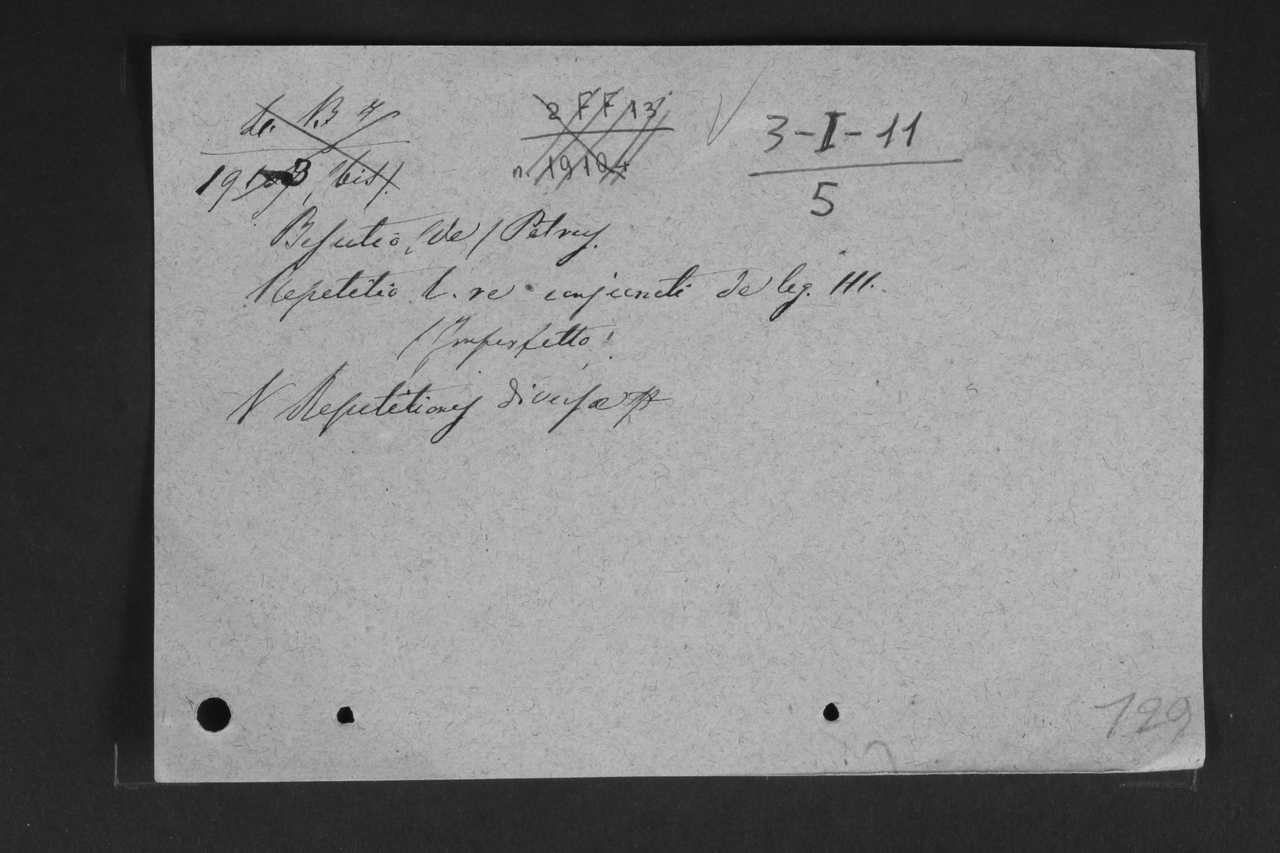 2 FF 13
n. 1919 +
3-I-11
5
Bisutio (de) Petrus.
Repetitio l. re conjuncti de leg. III.
(Imperfetto)
V Repetitiones diversæ
129